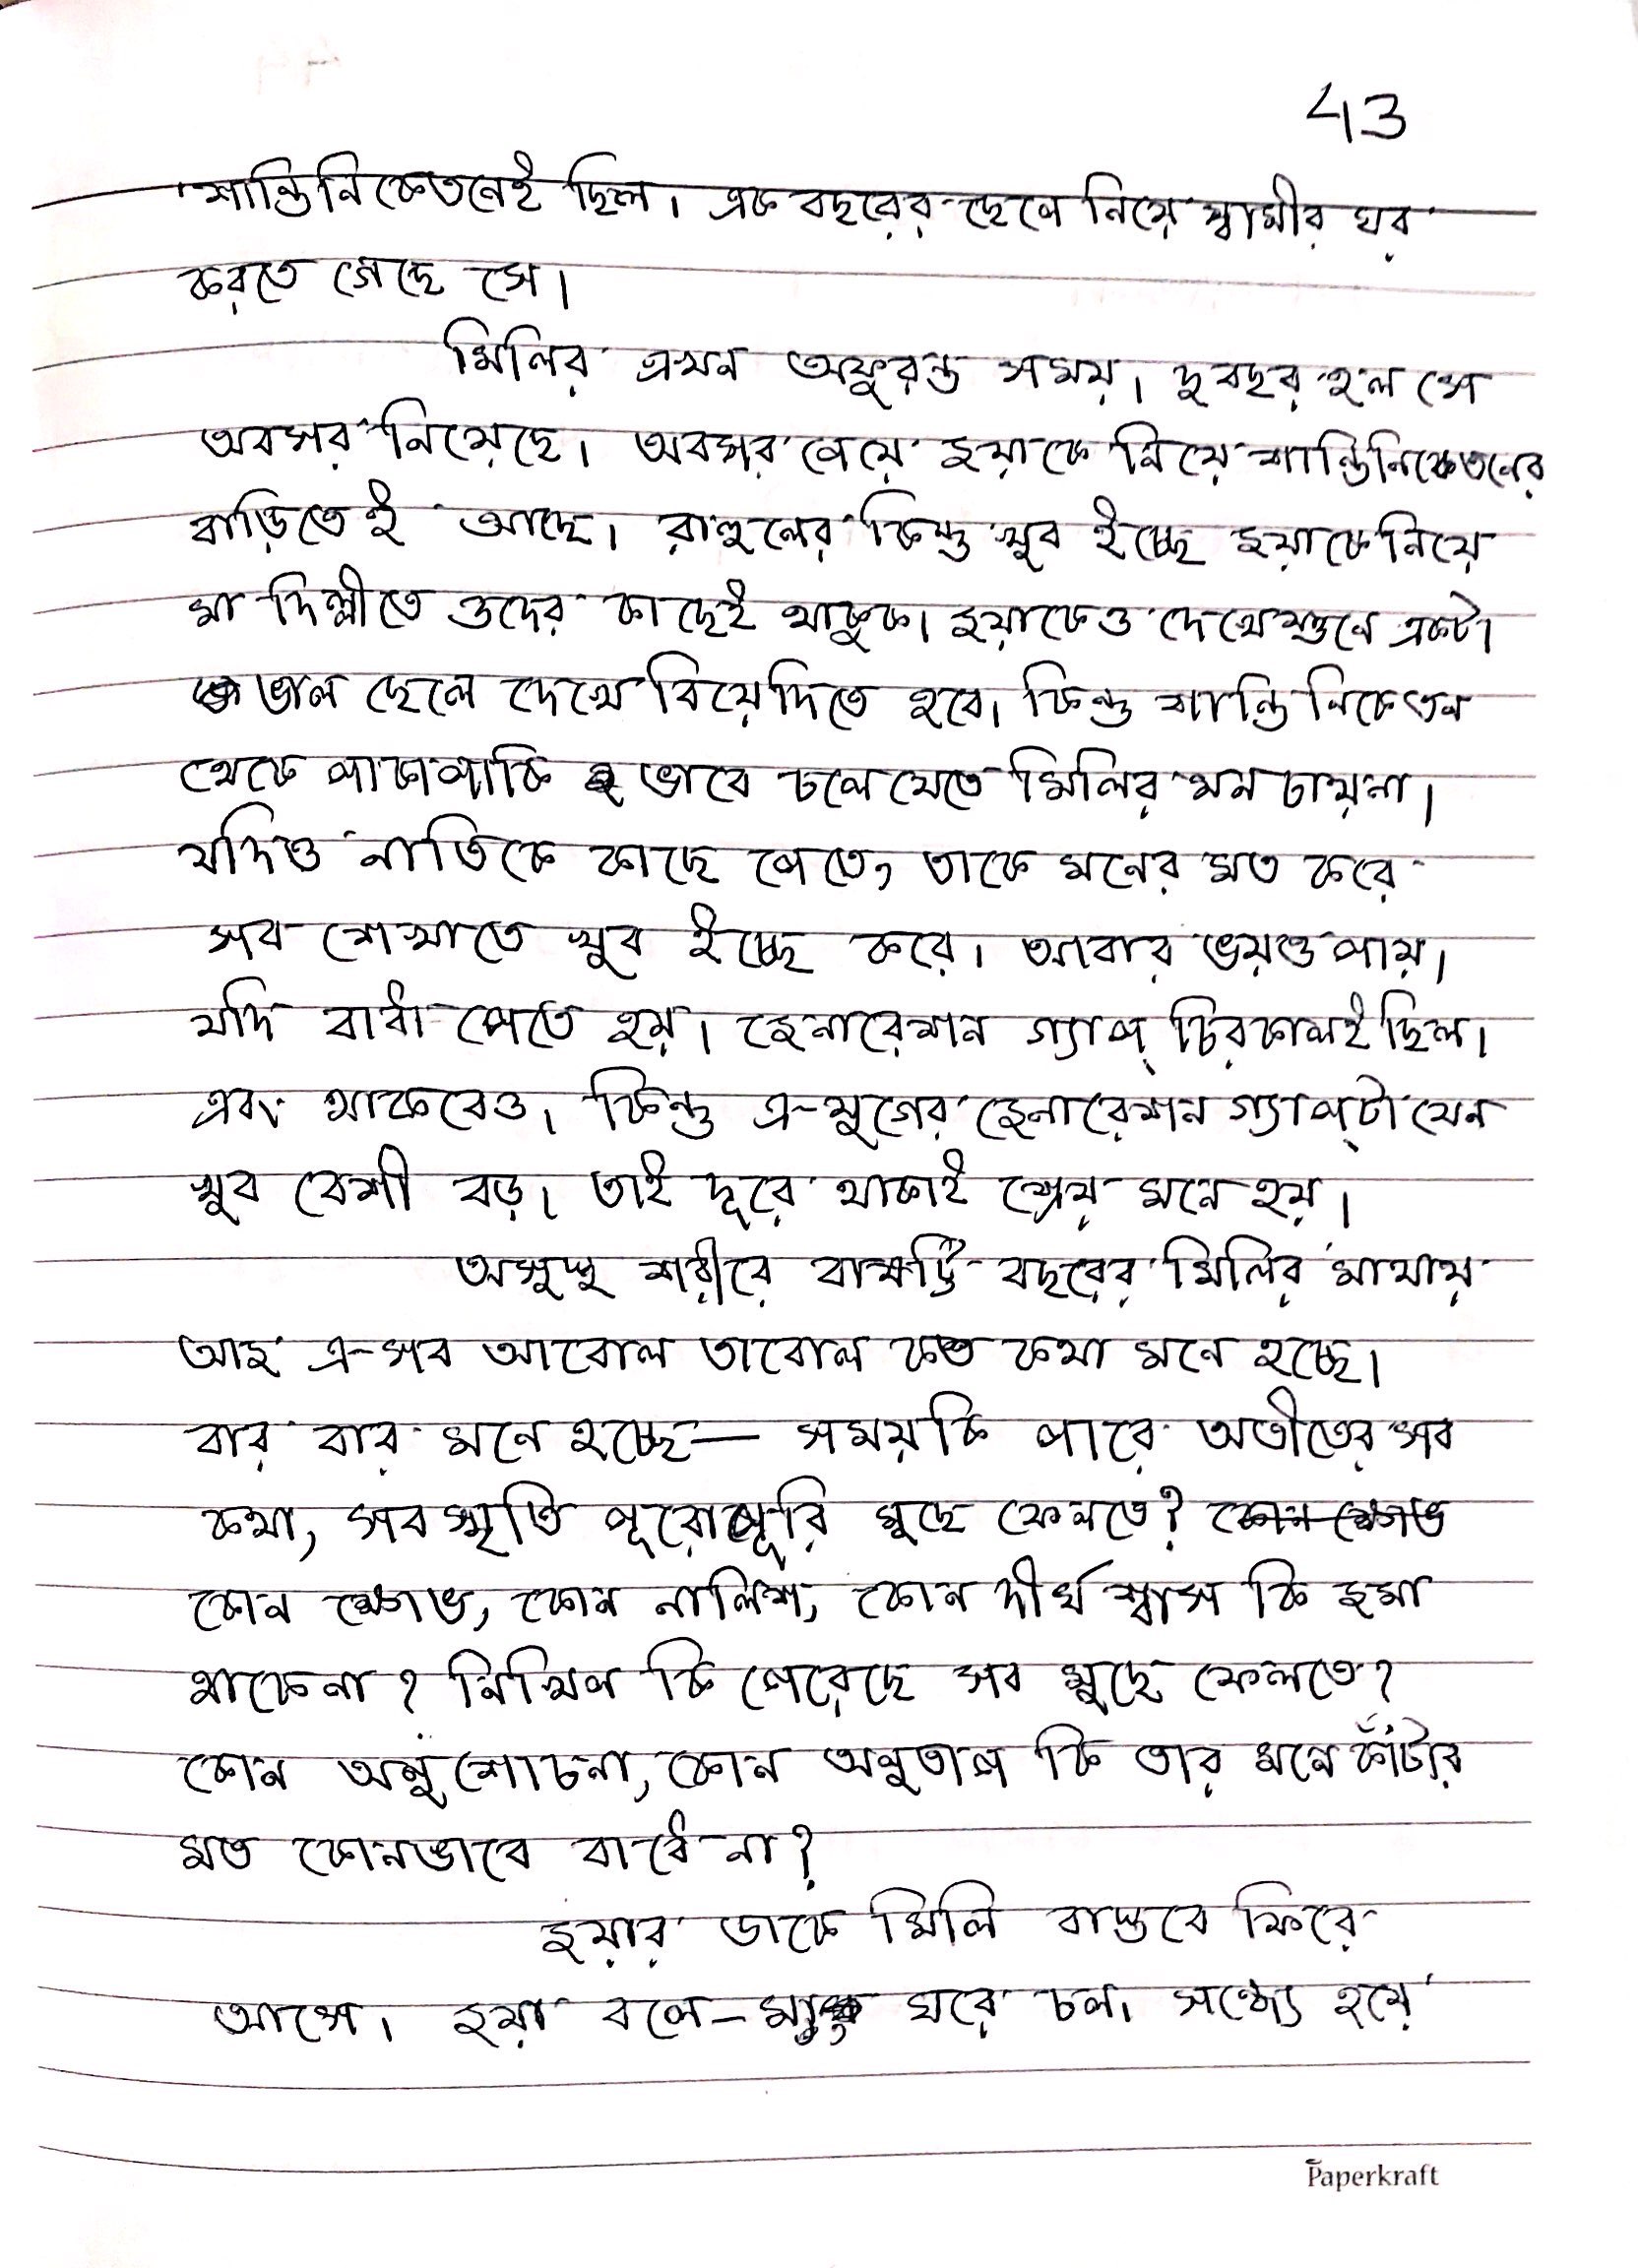 43
শান্তিনিকেতনেই ছিল। এক বছরের ছেলে নিয়ে স্বামীর ঘর
করতে গেছে সে।
মিলির এখন অফুরন্ত সময়। দুবছর হল সে
অবসর নিয়েছে। অবসর পেয়ে জয়াকে নিয়ে শান্তিনিকেতনের
বাড়িতেই আছে। রাহুলের কিন্তু খুব ইচ্ছে জয়াকে নিয়ে
মা দিল্লীতে ওদের কাছেই থাকুক। জয়াকেও দেখেশুনে একটা
ভাল ছেলে দেখে বিয়ে দিতে হবে। কিন্তু শান্তিনিকেতন
থেকে পাকাপাকি ভাবে চলে যেতে মিলির মন চায়না।
যদিও নাতিকে কাছে পেতে, তাকে মনের মত করে
সব শেখাতে খুব ইচ্ছে করে। আবার ভয়ও পায়।
যদি বাধা পেতে হয়। জেনারেশান গ্যাপ্ চিরকালই ছিল।
এবং থাকবেও। কিন্তু এ-যুগের জেনারেশান গ্যাপ্‌টা যেন
খুব বেশী বড়। তাই দূরে থাকাই শ্রেয় মনে হয়।
অসুস্থ শরীরে বাষট্টি বছরের মিলির মাথায়
আজ এ-সব আবোল তাবোল কত কথা মনে হচ্ছে।
বার বার মনে হচ্ছে— সময় কি পারে অতীতের সব
কথা, সব স্মৃতি পূরোপূরি মুছে ফেলতে? কোন ক্ষোভ
কোন ক্ষোভ, কোন নালিশ, কোন দীর্ঘশ্বাস কি জমা
থাকেনা? নিখিল কি পেরেছে সব মুছে ফেলতে?
কোন অনুশোচনা, কোন অনুতাপ কি তার মনে কাঁটার
মত কোনভাবে বাধেঁ না?
জয়ার ডাকে মিলি বাস্তবে ফিরে
আসে। জয়া বলে- ঘরে চল। সন্ধ্যে হয়ে
Paperkraft